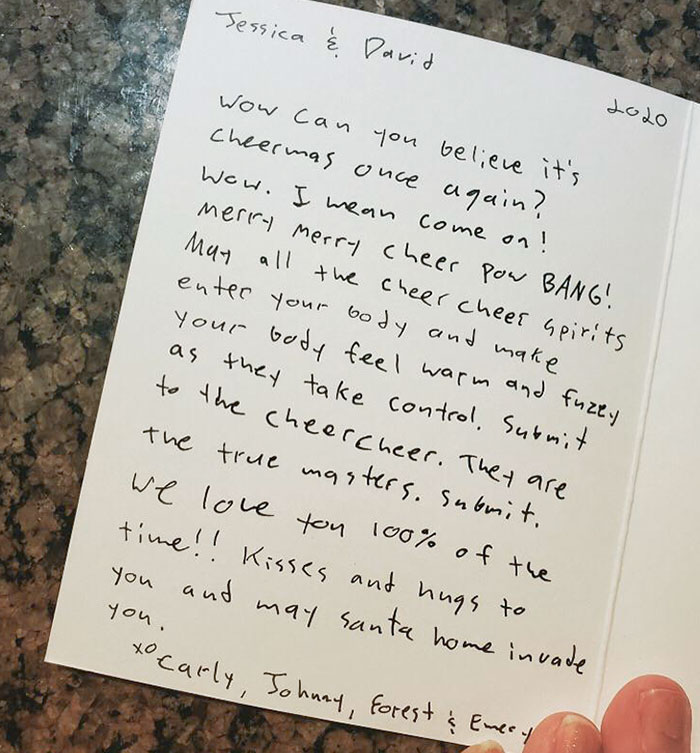 Jessica & David
2020
Wow can you believe it's
cheermas once again?
Wow. I mean come on!
Merry Merry cheer pow BANG!
May all the cheer cheer spirits
enter your body and make
your body feel warm and fuzzy
as they take control. Submit
to the cheercheer. They are
the true masters. Submit.
We love you 100% of the
time!! Kisses and hugs to
you and may santa home invade
you.
xo Carly, Johnny, Forest & Emery